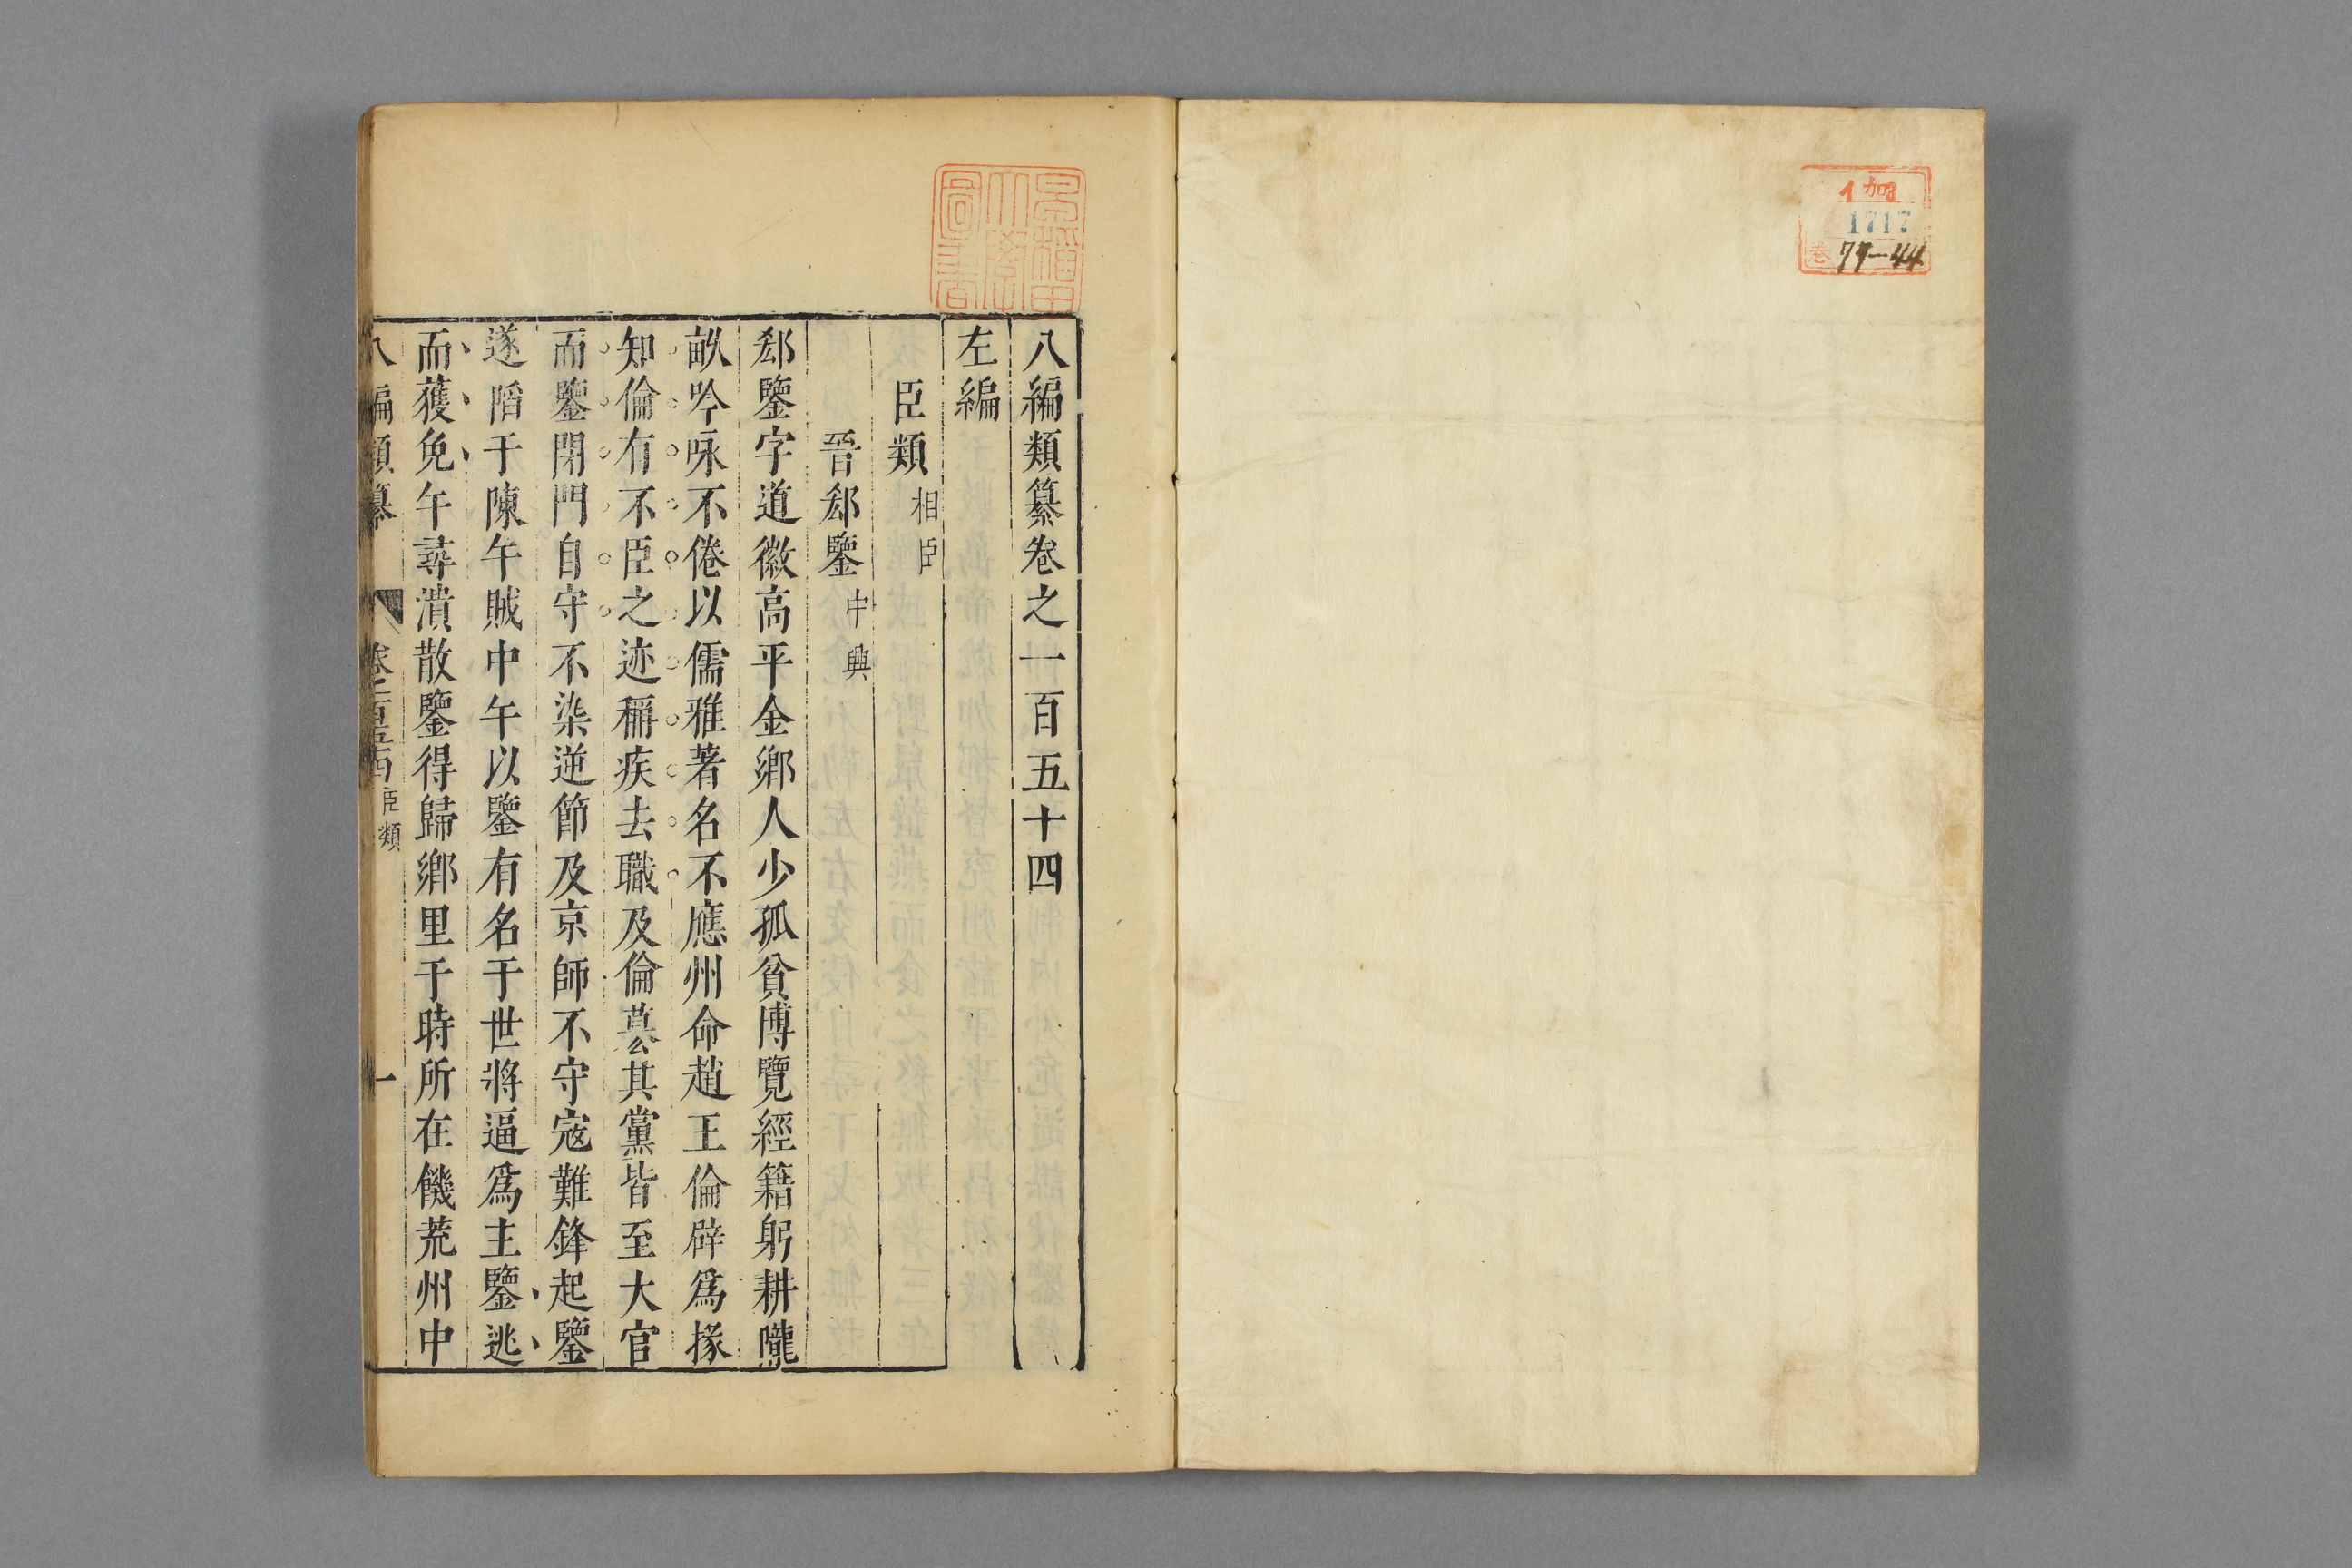 イ加3
1717
卷 77-44
早稲田大學圖書
八編類纂卷之一百五十四
左編
臣類 相臣
晉郄鑒 中興
郄鑒字道徽高平金鄉人少孤貧博覽經籍躬耕隴
畝吟咏不倦以儒雅著名不應州命趙王倫辟爲掾
知倫有不臣之迹稱疾去職及倫篡其黨皆至大官
而鑒閉門自守不染逆節及京師不守寇難鋒起鑒
遂陷于陳午賊中午以鑒有名于世將逼爲主鑒逃
而獲免午尋潰散鑒得歸鄉里于時所在饑荒州中
八編類纂 卷之一百五十四 臣類 一